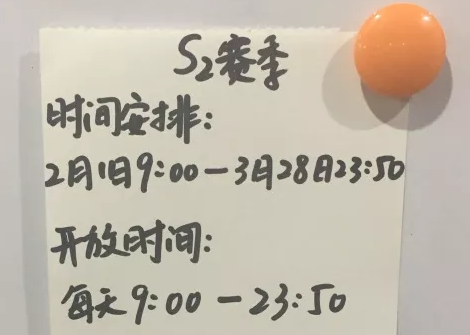 S2赛季
时间安排:
2月1日9:00-3月28日23:50
开放时间:
每天9:00-23:50